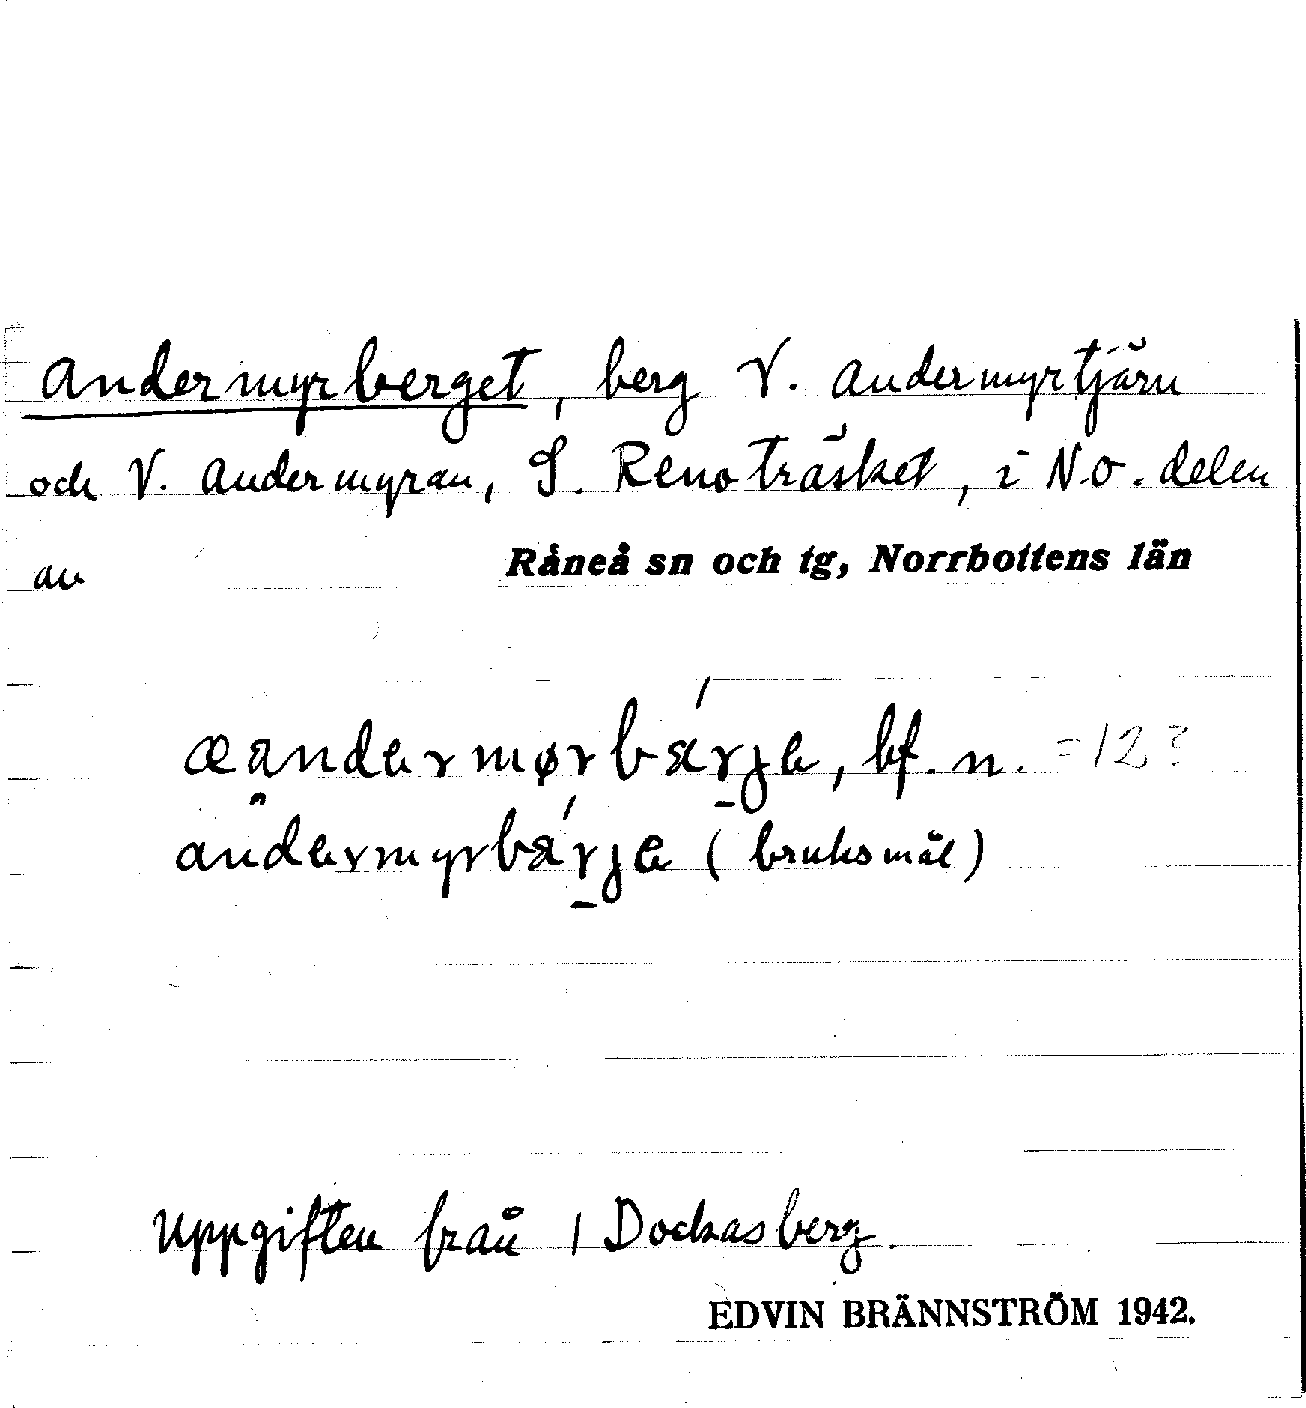 Andermyrberget, berg V. Andermyrtjärn
och V. Andermyran, S. Renoträsket, i N.O. delen
av Råneå sn och tg, Norrbottens län
bf. n. =12?
(bruksmål)
Uppgiften från 1 Dockasberg.
EDVIN BRÄNNSTRÖM 1942.